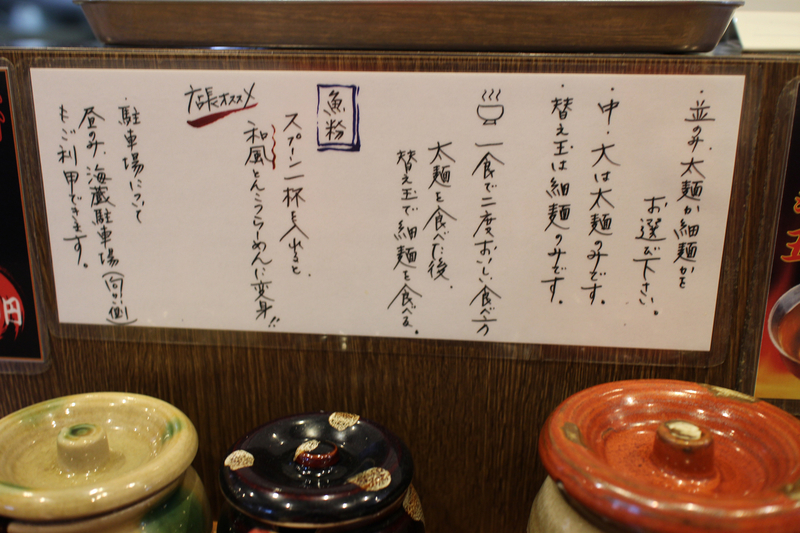 ・並のみ、太麺か細麺かを
お選び下さい。
・中・大は太麺のみです。
・替え玉は細麺のみです。
一食で二度おいしい食べ方
太麺を食べた後、
替え玉で細麺を食べる。
魚粉
スプーン一杯を入れると、
和風とんこつらーめんに変身!!
店長オススメ
・駐車場について
昼のみ、海蔵駐車場(向い側)
もご利用できます。
円